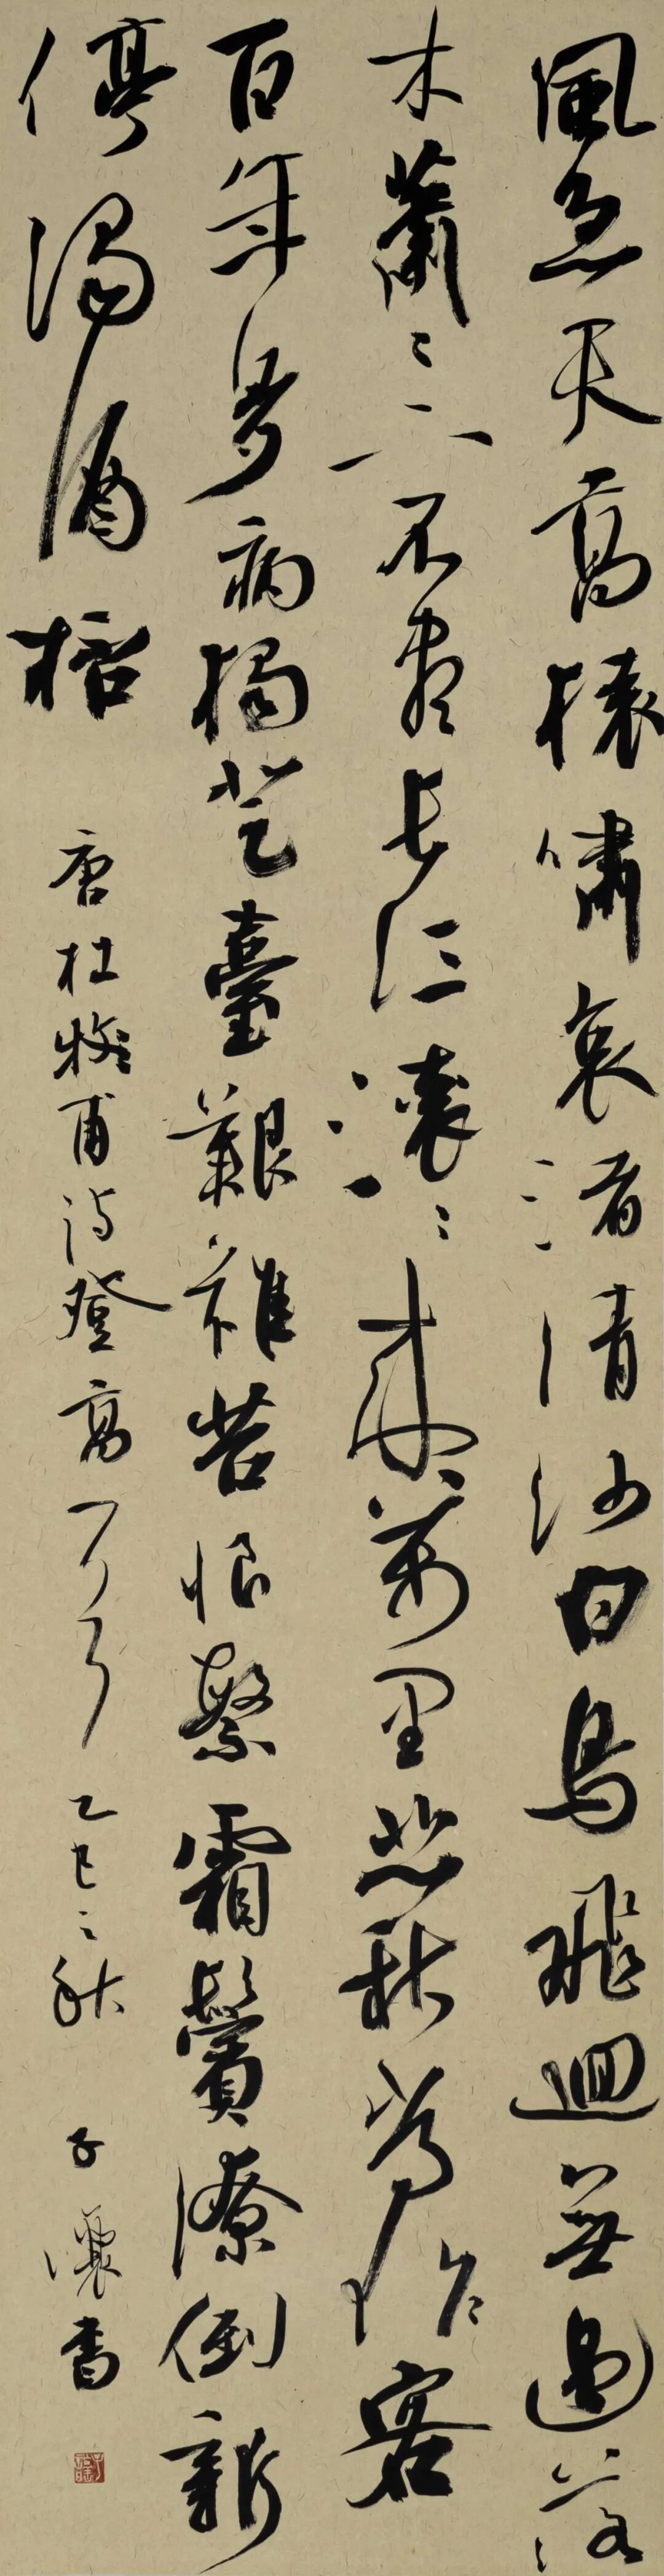 風急天高猿嘯哀渚清沙白鳥飛迴無邊落
木蕭〻下不盡長江滾〻來萬里悲秋常作客
百年多病獨登臺艱難苦恨繁霜鬢潦倒新
停濁酒桮 唐杜牧甫詩登高一首 乙巳之秋 子瀼書